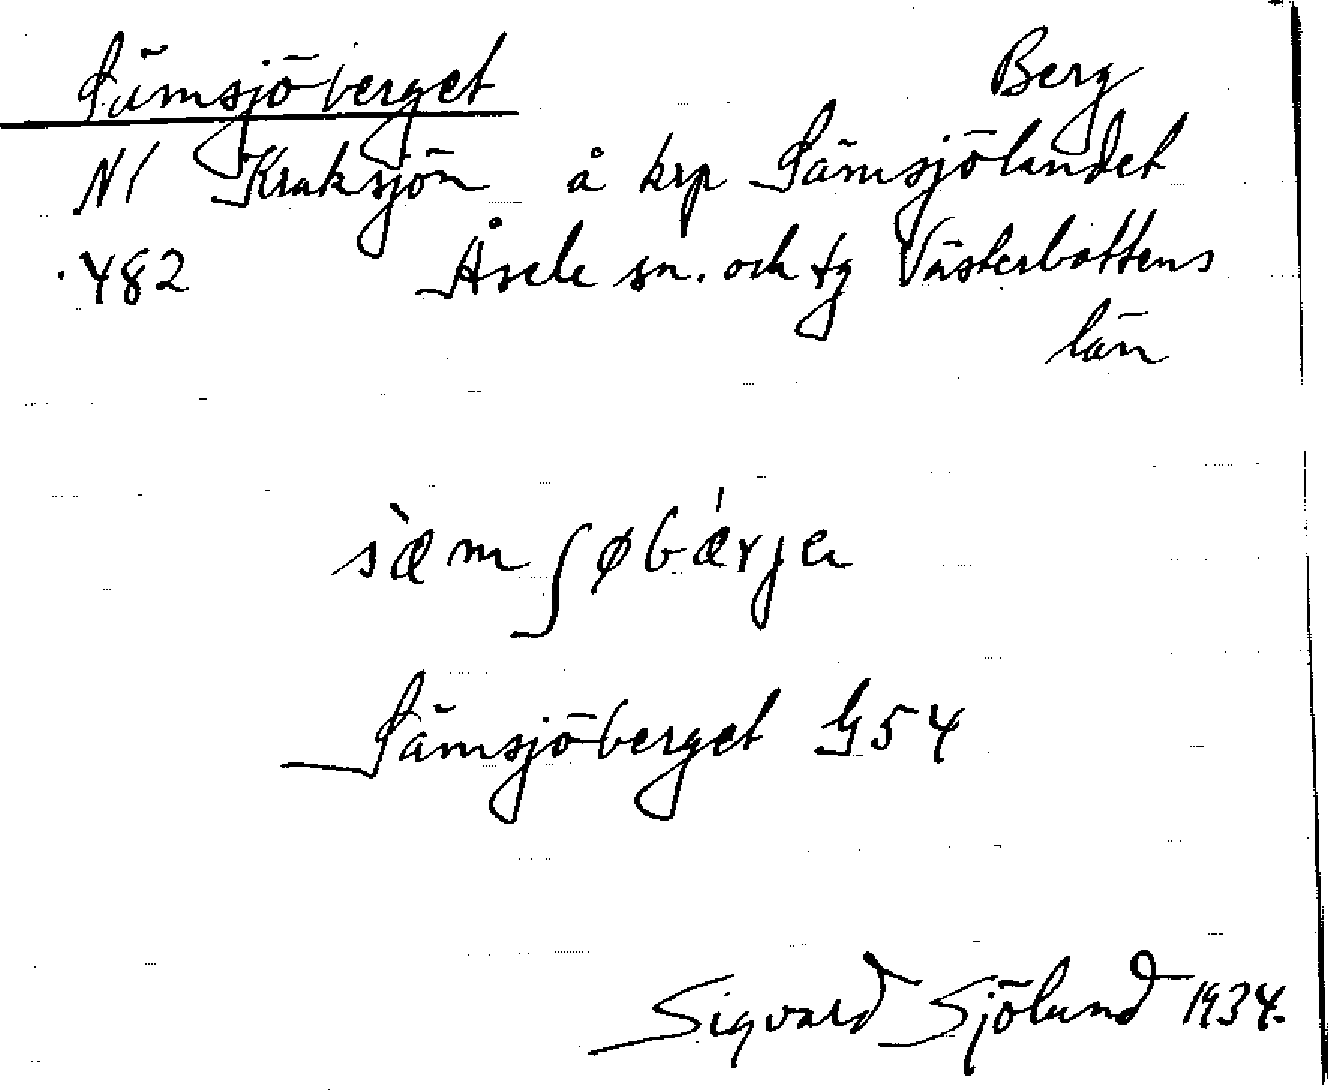 Sämsjöberget Berg
N/ Kraksjön å krp Sämsjölandet
482 Åsele sn. och tg Västerbottens
län
sæ̀mʃøbǽrjɑ
Sämsjöberget G54
Sigvard Sjölund 1934.